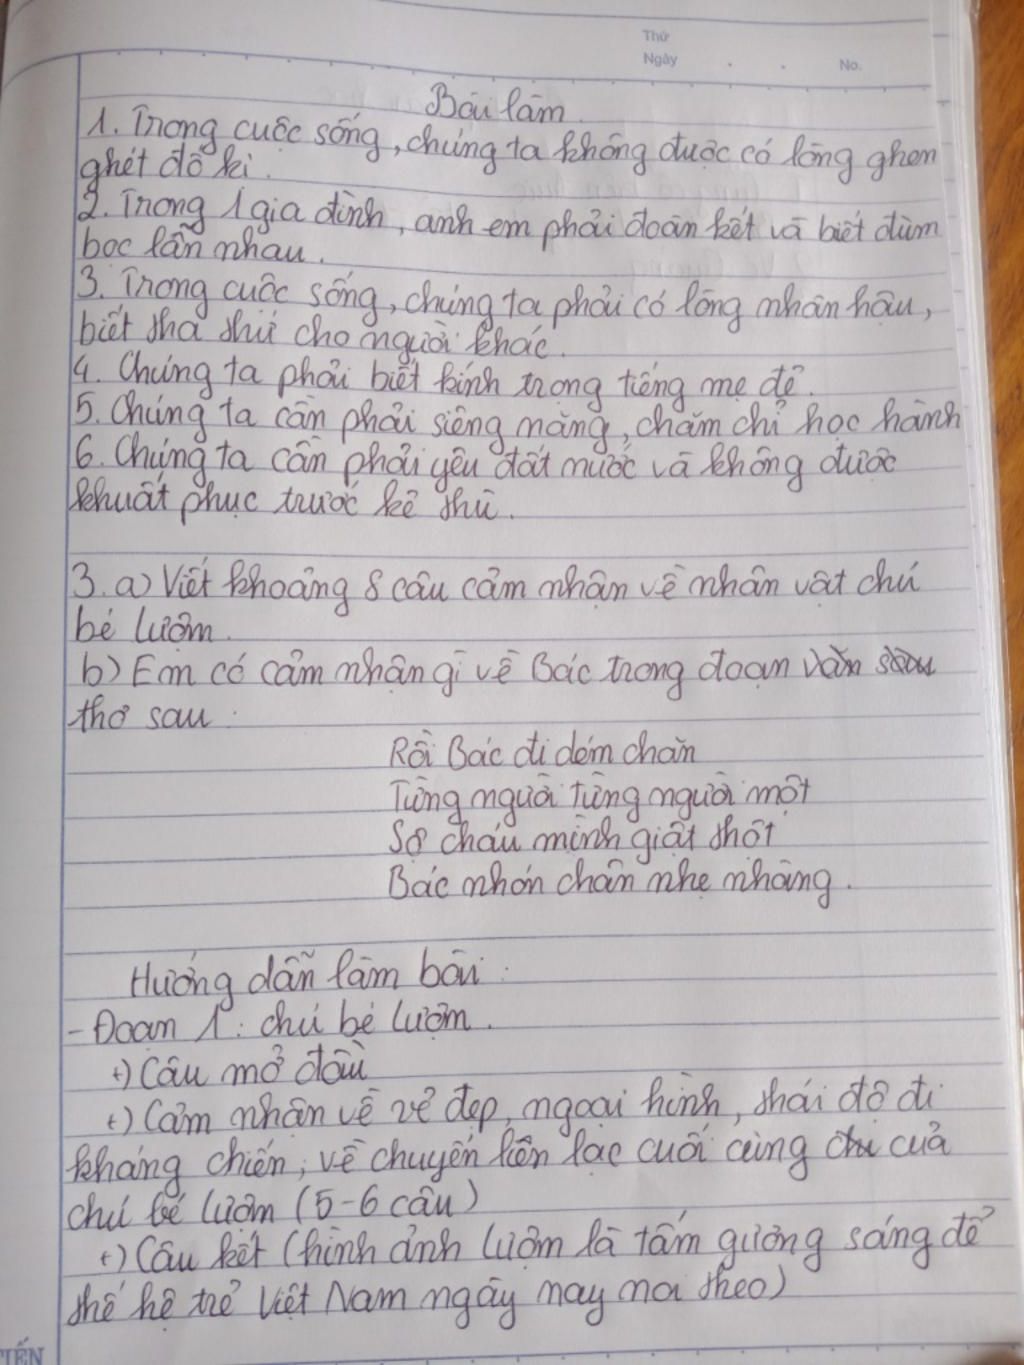 Thứ
Ngày . . No.
Bài làm.
1. Trong cuộc sống, chúng ta không được có lòng ghen
ghét đố kị.
2. Trong 1 gia đình, anh em phải đoàn kết và biết đùm
bọc lẫn nhau.
3. Trong cuộc sống, chúng ta phải có lòng nhân hậu,
biết tha thứ cho người khác.
4. Chúng ta phải biết kính trọng tiếng mẹ đẻ.
5. Chúng ta cần phải siêng năng, chăm chỉ học hành
6. Chúng ta cần phải yêu đất nước và không được
khuất phục trước kẻ thù.
3. a) Viết khoảng 8 câu cảm nhận về nhân vật chú
bé Lượm.
b) Em có cảm nhận gì về Bác trong đoạn văn sau
thơ sau:
Rồi Bác đi dém chăn
Từng người từng người một
Sợ cháu mình giật thột
Bác nhón chân nhẹ nhàng.
Hướng dẫn làm bài:
- Đoạn 1: chú bé Lượm.
+) Câu mở đầu
+) Cảm nhận về vẻ đẹp, ngoại hình, thái độ đi
kháng chiến, về chuyến liên lạc cuối cùng của
chú bé Lượm (5-6 câu)
+) Câu kết (hình ảnh Lượm là tấm gương sáng để
thế hệ trẻ Việt Nam ngày nay noi theo)
TIẾN